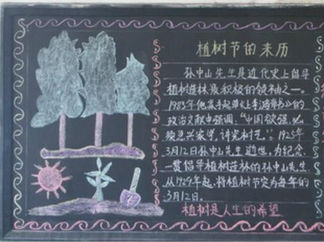 植树节的来历
孙中山先生是近代史上倡导
植树造林最积极的领袖之一。
1893年他亲手起草《上李鸿章书》的
政治文献中强调:“中国欲强,
须急兴农学,讲究树艺。”1925年
3月12日孙中山先生逝世,为纪念
一贯倡导植树造林的孙中山先生
从1929年起,将植树节定为每年的
3月12日。
植树是人生的希望